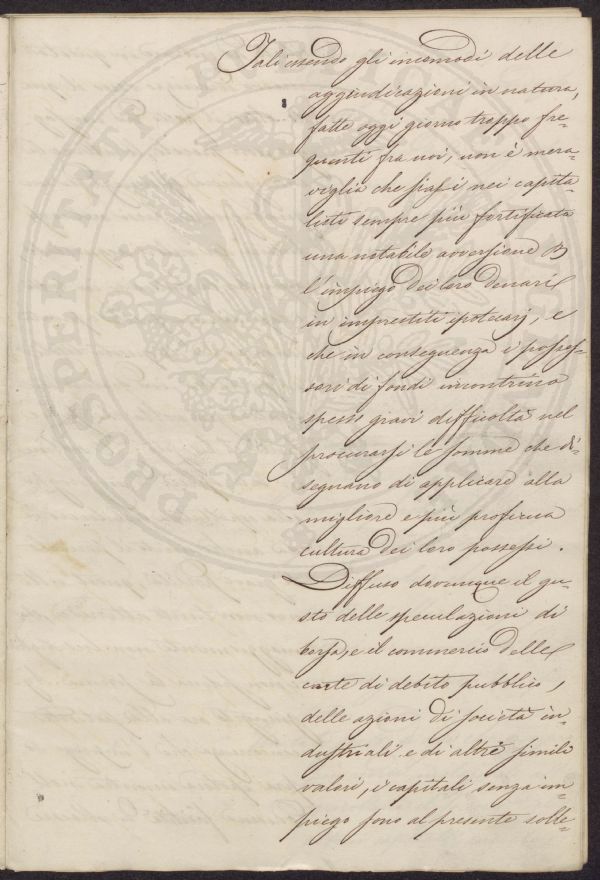 Tali essendo gli incomodi delle
aggiudicazioni in natura,
fatte oggi giorno troppo fre=
quenti fra noi, non è mera=
viglia che siasi nei capita=
listi sempre più fortificata
una notabile avversione
l'impiego dei loro denari
in imprestiti ipotecarj, e
che in conseguenza i posses=
sori di fondi incontrino
spesso gravi difficoltà nel
procurarsi le somme che di=
segnano di applicare alla
migliore e più proficua
cultura dei loro possessi.
Diffuso dovunque il gu=
sto delle speculazioni di
borsa, e il commercio delle
carte di debito pubblico,
delle azioni di società in=
dustriali e di altri simili
valori, i capitali senza im=
piego sono al presente solle=
PROSPERITÀ PUBBLICA